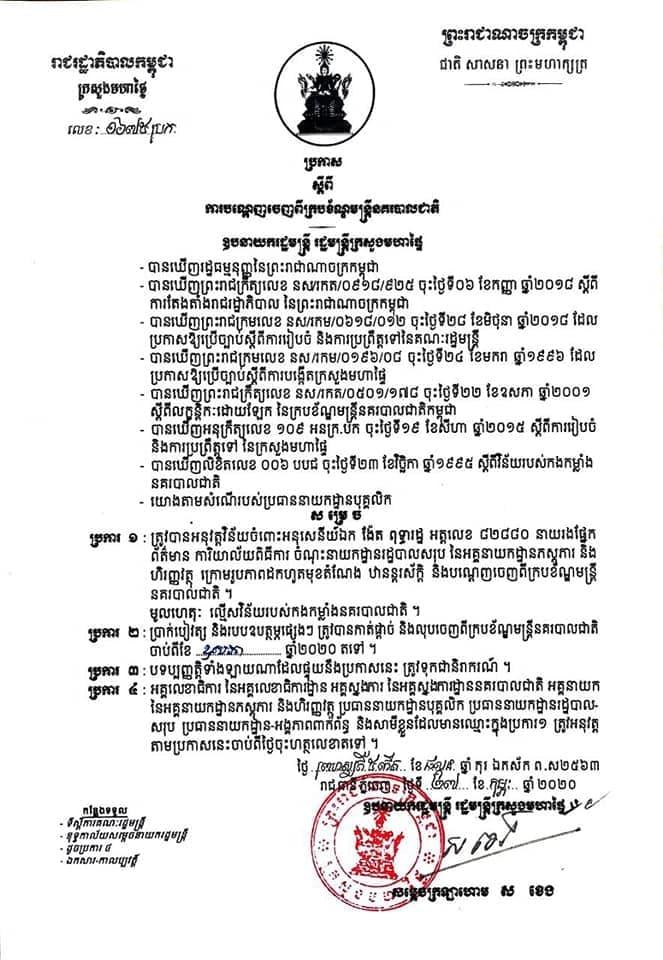 ព្រះរាជាណាចក្រកម្ពុជា
ជាតិ សាសនា ព្រះមហាក្សត្រ
រាជរដ្ឋាភិបាលកម្ពុជា
ក្រសួងមហាផ្ទៃ
លេខ: ១៦៧៥ ប្រក
ប្រកាស
ស្តីពី
ការបណ្តេញចេញពីក្របខ័ណ្ឌមន្ត្រីនគរបាលជាតិ
ឧបនាយករដ្ឋមន្ត្រី រដ្ឋមន្ត្រីក្រសួងមហាផ្ទៃ
- បានឃើញរដ្ឋធម្មនុញ្ញនៃព្រះរាជាណាចក្រកម្ពុជា
- បានឃើញព្រះរាជក្រឹត្យលេខ នស/រកត/០៩១៨/៩២៥ ចុះថ្ងៃទី០៦ ខែកញ្ញា ឆ្នាំ២០១៨ ស្តីពី
ការតែងតាំងរាជរដ្ឋាភិបាល នៃព្រះរាជាណាចក្រកម្ពុជា
- បានឃើញព្រះរាជក្រមលេខ នស/រកម/០៦១៨/០១២ ចុះថ្ងៃទី២៨ ខែមិថុនា ឆ្នាំ២០១៨ ដែល
ប្រកាសឱ្យប្រើច្បាប់ស្តីពីការរៀបចំ និងការប្រព្រឹត្តទៅនៃគណៈរដ្ឋមន្ត្រី
- បានឃើញព្រះរាជក្រមលេខ នស/រកម/០១៩៦/០៨ ចុះថ្ងៃទី២៤ ខែមករា ឆ្នាំ១៩៩៦ ដែល
ប្រកាសឱ្យប្រើច្បាប់ស្តីពីការបង្កើតក្រសួងមហាផ្ទៃ
- បានឃើញព្រះរាជក្រឹត្យលេខ នស/រកត/០៥០១/១៧៨ ចុះថ្ងៃទី២២ ខែឧសភា ឆ្នាំ២០០១
ស្តីពីលក្ខន្តិកៈដោយឡែក នៃក្របខ័ណ្ឌមន្ត្រីនគរបាលជាតិកម្ពុជា
- បានឃើញអនុក្រឹត្យលេខ ១០៩ អនក្រ.បក ចុះថ្ងៃទី១៩ ខែសីហា ឆ្នាំ២០១៥ ស្តីពីការរៀបចំ
និងការប្រព្រឹត្តទៅ នៃក្រសួងមហាផ្ទៃ
- បានឃើញលិខិតលេខ ០០៦ បបជ ចុះថ្ងៃទី២៣ ខែវិច្ឆិកា ឆ្នាំ១៩៩៥ ស្តីពីវិន័យរបស់កងកម្លាំង
នគរបាលជាតិ
- យោងតាមសំណើរបស់ប្រធាននាយកដ្ឋានបុគ្គលិក
ស ម្រេ ច
ប្រការ ១ : ត្រូវបានអនុវត្តវិន័យចំពោះអនុសេនីយ៍ឯក ង៉ែត ពុទ្ធារដ្ឋ អត្តលេខ ៨២៨៨០ នាយរងផ្នែក
ព័ត៌មាន ការិយាល័យពិធីការ ចំណុះនាយកដ្ឋានរដ្ឋបាលសរុប នៃអគ្គនាយកដ្ឋានភស្តុភារ និង
ហិរញ្ញវត្ថុ ក្រោមរូបភាពដកហូតមុខតំណែង ឋានន្តរស័ក្តិ និងបណ្តេញចេញពីក្របខ័ណ្ឌមន្ត្រី
នគរបាលជាតិ ។
មូលហេតុៈ ល្មើសវិន័យរបស់កងកម្លាំងនគរបាលជាតិ ។
ប្រការ ២ : ប្រាក់បៀវត្ស និងរបបឧបត្ថម្ភផ្សេងៗ ត្រូវបានកាត់ផ្តាច់ និងលុបចេញពីក្របខ័ណ្ឌមន្ត្រីនគរបាលជាតិ
ចាប់ពីខែ ឆ្នាំ២០២០ តទៅ ។
ប្រការ ៣ : បទប្បញ្ញត្តិទាំងឡាយណាដែលផ្ទុយនឹងប្រកាសនេះ ត្រូវទុកជានិរាករណ៍ ។
ប្រការ ៤ : អគ្គលេខាធិការ នៃអគ្គលេខាធិការដ្ឋាន អគ្គស្នងការ នៃអគ្គស្នងការដ្ឋាននគរបាលជាតិ អគ្គនាយក
នៃអគ្គនាយកដ្ឋានភស្តុភារ និងហិរញ្ញវត្ថុ ប្រធាននាយកដ្ឋានបុគ្គលិក ប្រធាននាយកដ្ឋានរដ្ឋបាល-
សរុប ប្រធាននាយកដ្ឋាន-អង្គភាពពាក់ព័ន្ធ និងសាមីខ្លួនដែលមានឈ្មោះក្នុងប្រការ១ ត្រូវអនុវត្ត
តាមប្រកាសនេះចាប់ពីថ្ងៃចុះហត្ថលេខាតទៅ ។
ថ្ងៃ ខែ ផល្គុន ឆ្នាំ កុរ ឯកស័ក ព.ស២៥៦៣
រាជធានីភ្នំពេញ ថ្ងៃទី ២៧ ខែ កុម្ភៈ ឆ្នាំ ២០២០
ឧបនាយករដ្ឋមន្ត្រី រដ្ឋមន្ត្រីក្រសួងមហាផ្ទៃ
សម្តេចក្រឡាហោម ស ខេង
កន្លែងទទួល
- ទីស្តីការគណៈរដ្ឋមន្ត្រី
- ខុទ្ទកាល័យសម្តេចនាយករដ្ឋមន្ត្រី
- ដូចប្រការ ៤
- ឯកសារ-កាលប្បវត្តិ